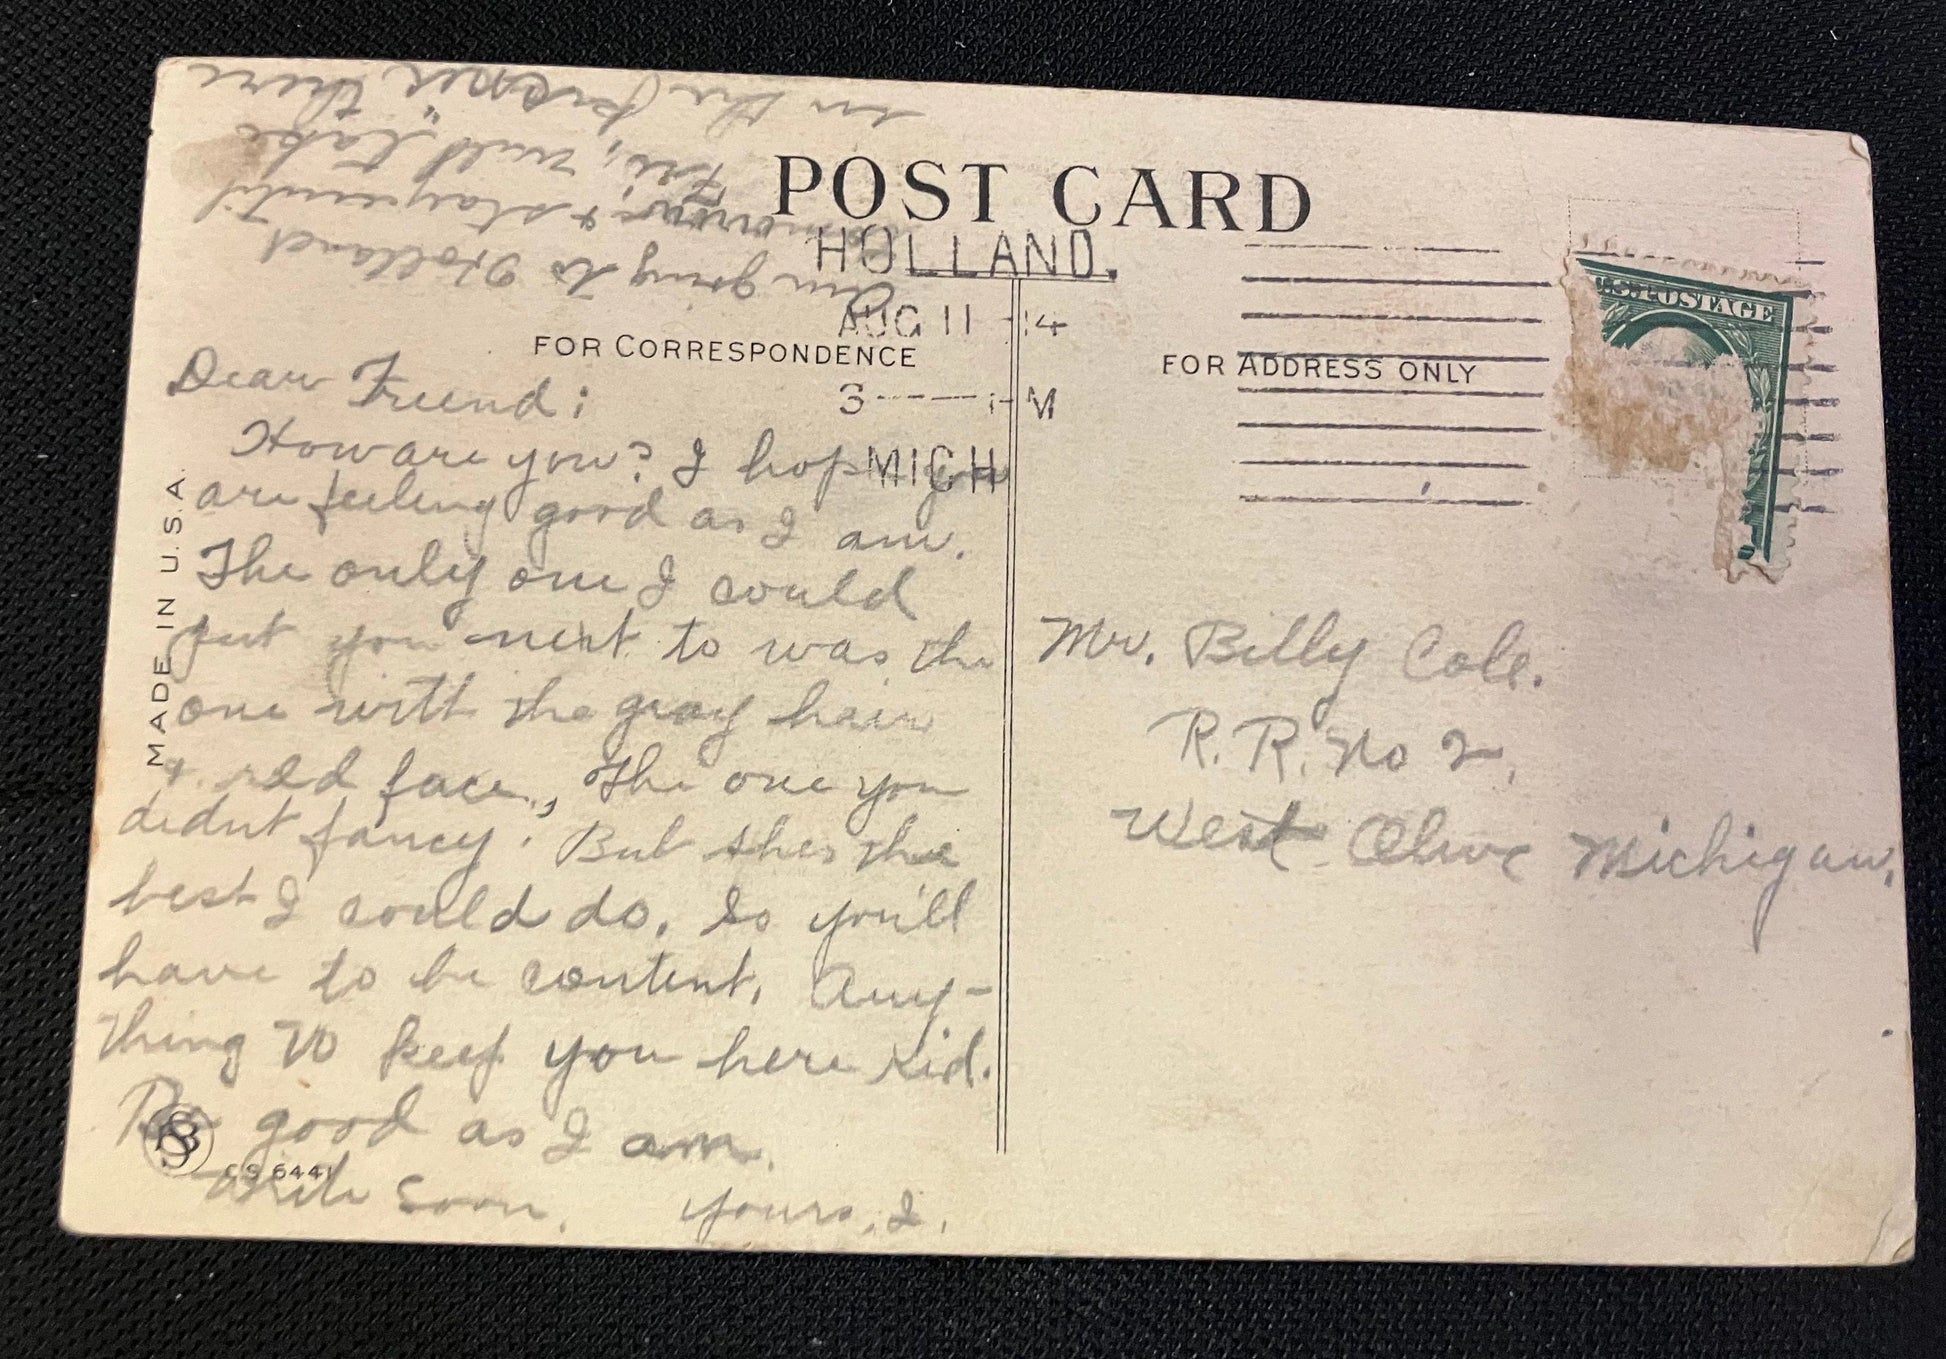 POST CARD
HOLLAND.
AUG 11 14
3 M
MICH
FOR CORRESPONDENCE
FOR ADDRESS ONLY
U.S. POSTAGE
MADE IN U.S.A.
Dear Friend:
How are you? I hope you
are feeling good as I am.
The only one I could
put you next to was the
one with the gray hair
& red face, The one you
didnt fancy. But shes the
best I could do. So you'll
have to be content. Any-
thing to keep you here kid.
Be good as I am.
Write soon. Yours, I.
CS 6441
Am going to Holland
tomorrow & stay until
Fri; will take
in the "fusser" there
Mr. Billy Cole.
R. R. No 2,
West Olive Michigan.